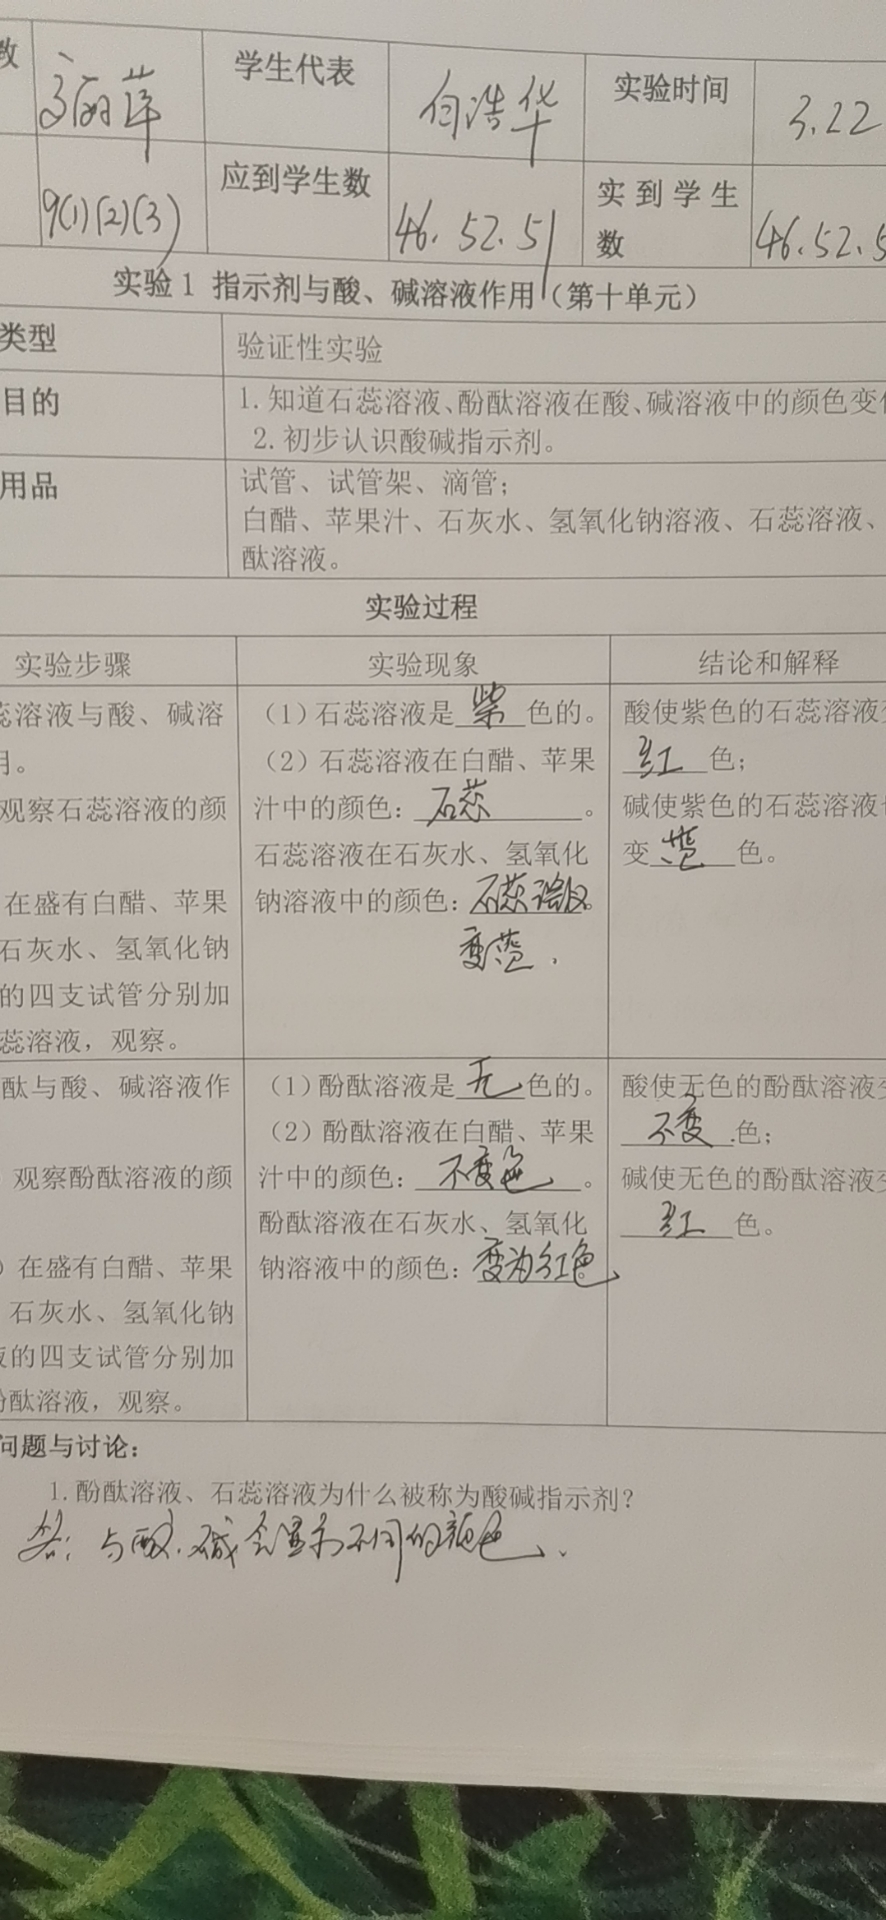 教 高丽萍 学生代表 白浩华 实验时间 3.22
9(1)(2)(3) 应到学生数 46.52.51 实到学生数 46.52.5
实验1 指示剂与酸、碱溶液作用(第十单元)
类型 验证性实验
目的 1.知道石蕊溶液、酚酞溶液在酸、碱溶液中的颜色变
2.初步认识酸碱指示剂。
用品 试管、试管架、滴管;
白醋、苹果汁、石灰水、氢氧化钠溶液、石蕊溶液、
酞溶液。
实验过程
实验步骤 实验现象 结论和解释
蕊溶液与酸、碱溶
用。
观察石蕊溶液的颜
在盛有白醋、苹果
石灰水、氢氧化钠
的四支试管分别加
蕊溶液,观察。
(1)石蕊溶液是紫色的。
(2)石蕊溶液在白醋、苹果
汁中的颜色:石蕊。
石蕊溶液在石灰水、氢氧化
钠溶液中的颜色:石蕊溶液。
变蓝.
酸使紫色的石蕊溶液变
红色;
碱使紫色的石蕊溶液
变蓝色。
酞与酸、碱溶液作
观察酚酞溶液的颜
)在盛有白醋、苹果
石灰水、氢氧化钠
液的四支试管分别加
酚酞溶液,观察。
(1)酚酞溶液是无色的。
(2)酚酞溶液在白醋、苹果
汁中的颜色:不变色。
酚酞溶液在石灰水、氢氧化
钠溶液中的颜色:变为红色
酸使无色的酚酞溶液变
不变色;
碱使无色的酚酞溶液变
红色。
问题与讨论:
1.酚酞溶液、石蕊溶液为什么被称为酸碱指示剂?
答:与酸.碱会显示不同的颜色.